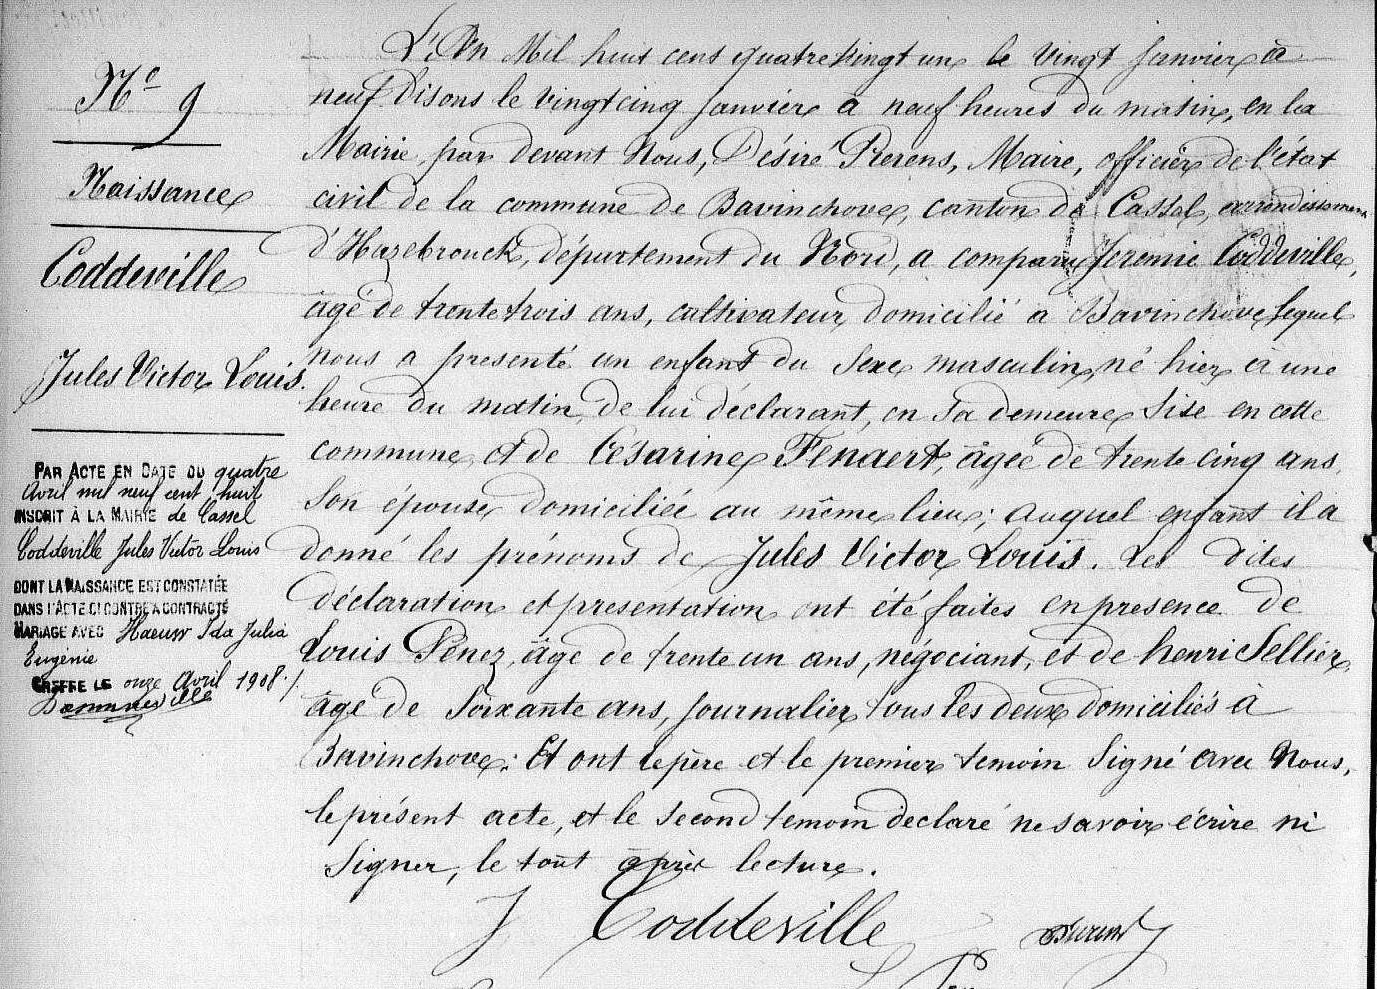 N° 9
Naissance
Coddeville
Jules Victor Louis.
PAR ACTE EN DATE DU quatre
avril mil neuf cent huit
INSCRIT À LA MAIRIE de Cassel
Coddeville Jules Victor Louis
DONT LA NAISSANCE EST CONSTATÉE
DANS L'ACTE CI CONTRE A CONTRACTÉ
MARIAGE AVEC Haeuw Ida Julia
Eugénie
GREFFE LE onze Avril 1908 ./.
L'An Mil huit cent quatre vingt un le vingt janvier à
neuf Disons le vingt cinq janvier à neuf heures du matin, en la
Mairie, par devant Nous, Désiré Pierens, Maire, officier de l'état
civil de la commune de Bavinchove, canton de Cassel, arrondissement
d'Hazebrouck, département du Nord, a comparu Jeremie Coddeville,
âgé de trente trois ans, cultivateur domicilié à Bavinchove, lequel
nous a presenté un enfant du sexe masculin, né hier à une
heure du matin, de lui déclarant, en sa demeure sise en cette
commune, et de Césarine Fenaert, âgée de trente cinq ans,
son épouse domiciliée au même lieu; auquel enfant il a
donné les prénoms de Jules Victor Louis. Les dites
déclaration et presentation ont été faites en presence de
Louis Pénez, âgé de trente un ans, négociant, et de henri Sellier,
âgé de soixante ans, journalier tous les deux domiciliés à
Bavinchove: Et ont le père et le premier temoin signé avec Nous,
le présent acte, et le second temoin déclaré ne savoir écrire ni
signer, le tout après lecture.
J Coddeville